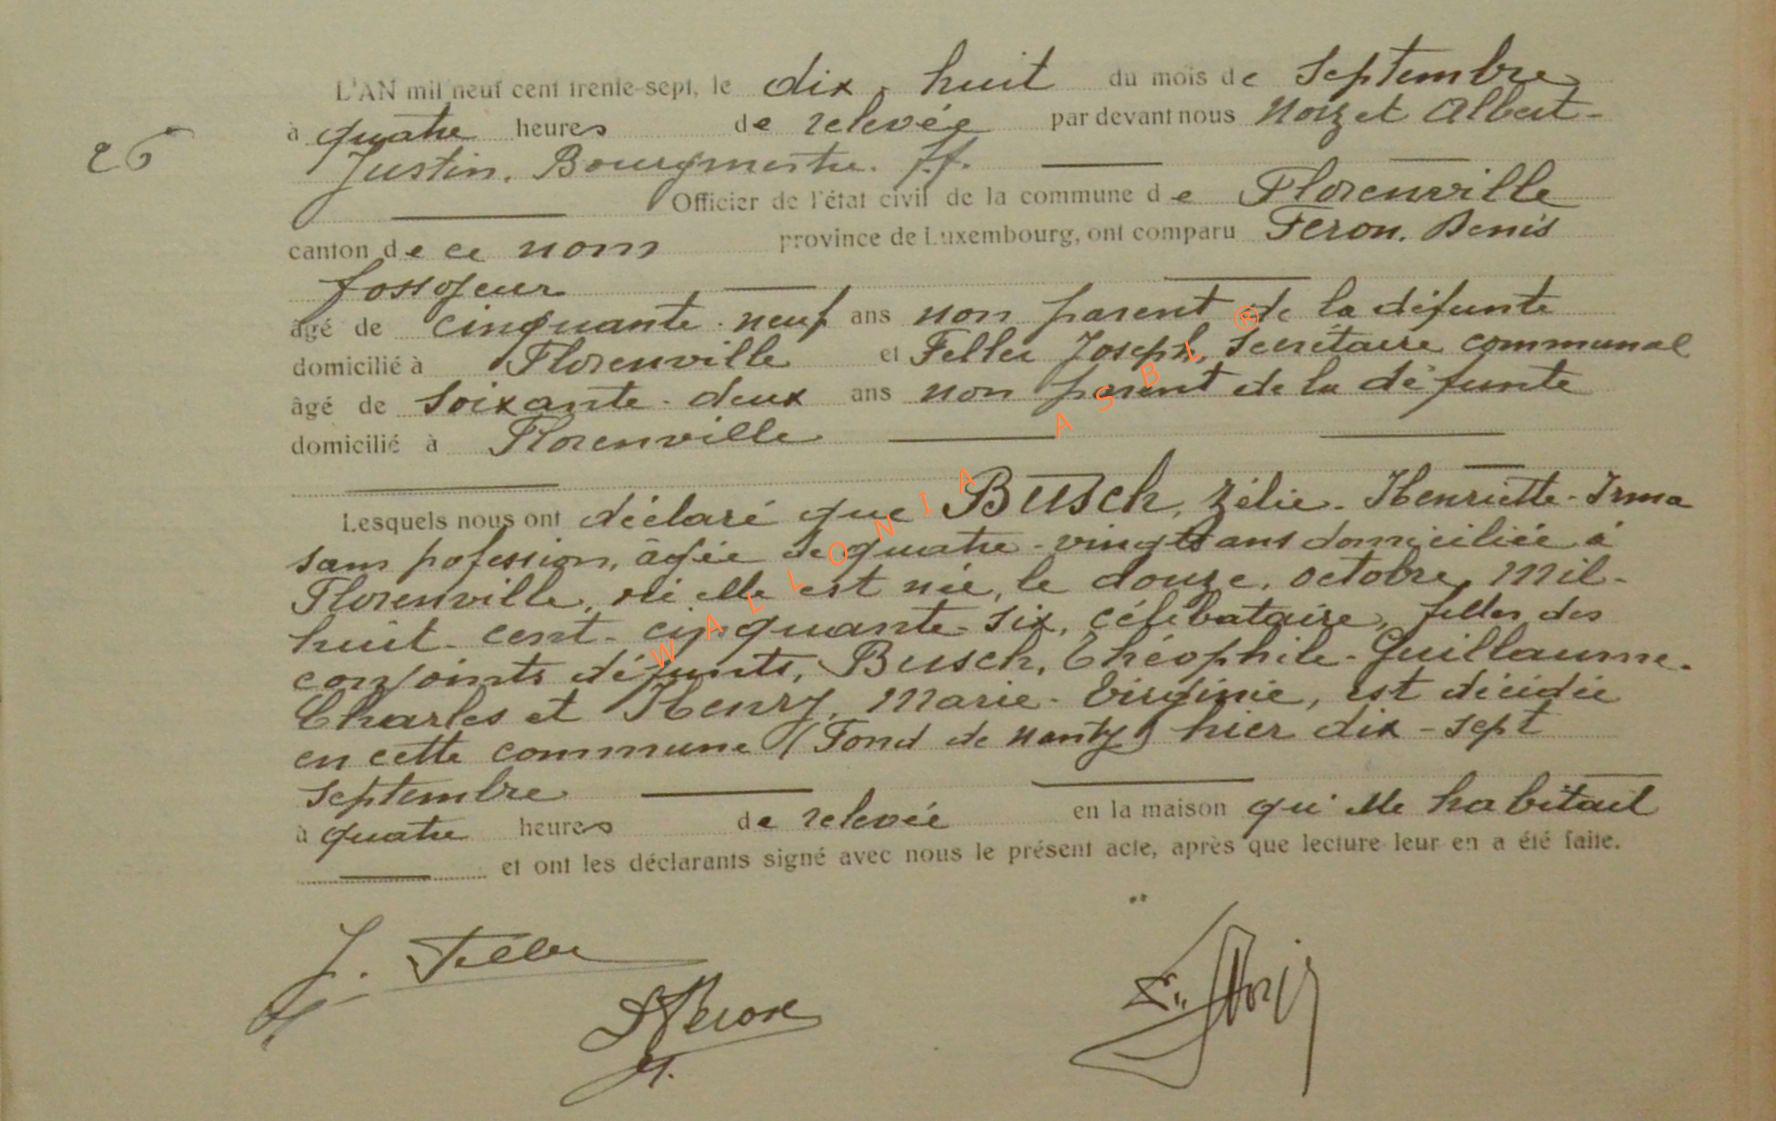 L'AN mil neuf cent trente-sept, le dix-huit du mois de Septembre
26
à quatre heures de relevée par devant nous Nozet Albert-
Justin, Bourgmestre. f.f.
Officier de l'état civil de la commune de Florenville
canton de ce nom province de Luxembourg, ont comparu Feron, Denis
fossoyeur
âgé de cinquante-neuf ans non parent de la défunte
domicilié à Florenville et Feller Joseph, Secrétaire communal
âgé de soixante-deux ans non parent de la défunte
domicilié à Florenville
Lesquels nous ont déclaré que Busch, Zélie-Henriette-Irma
sans pofession, âgée de quatre-vingts ans domiciliée à
Florenville, où elle est née, le douze, octobre, mil-
huit-cent-cinquante-six, célébataire, filles des
conjoints défunts, Busch, Théophile-Guillaume-
Charles et Henry, Marie-Virginie, est décédée
en cette commune (Fond de nanty) hier dix-sept
septembre
à quatre heures de relevée en la maison qu'elle habitait
et ont les déclarants signé avec nous le présent acte, après que lecture leur en a été faite.
J. Feller
D Feron
WALLONIA ASBL ®